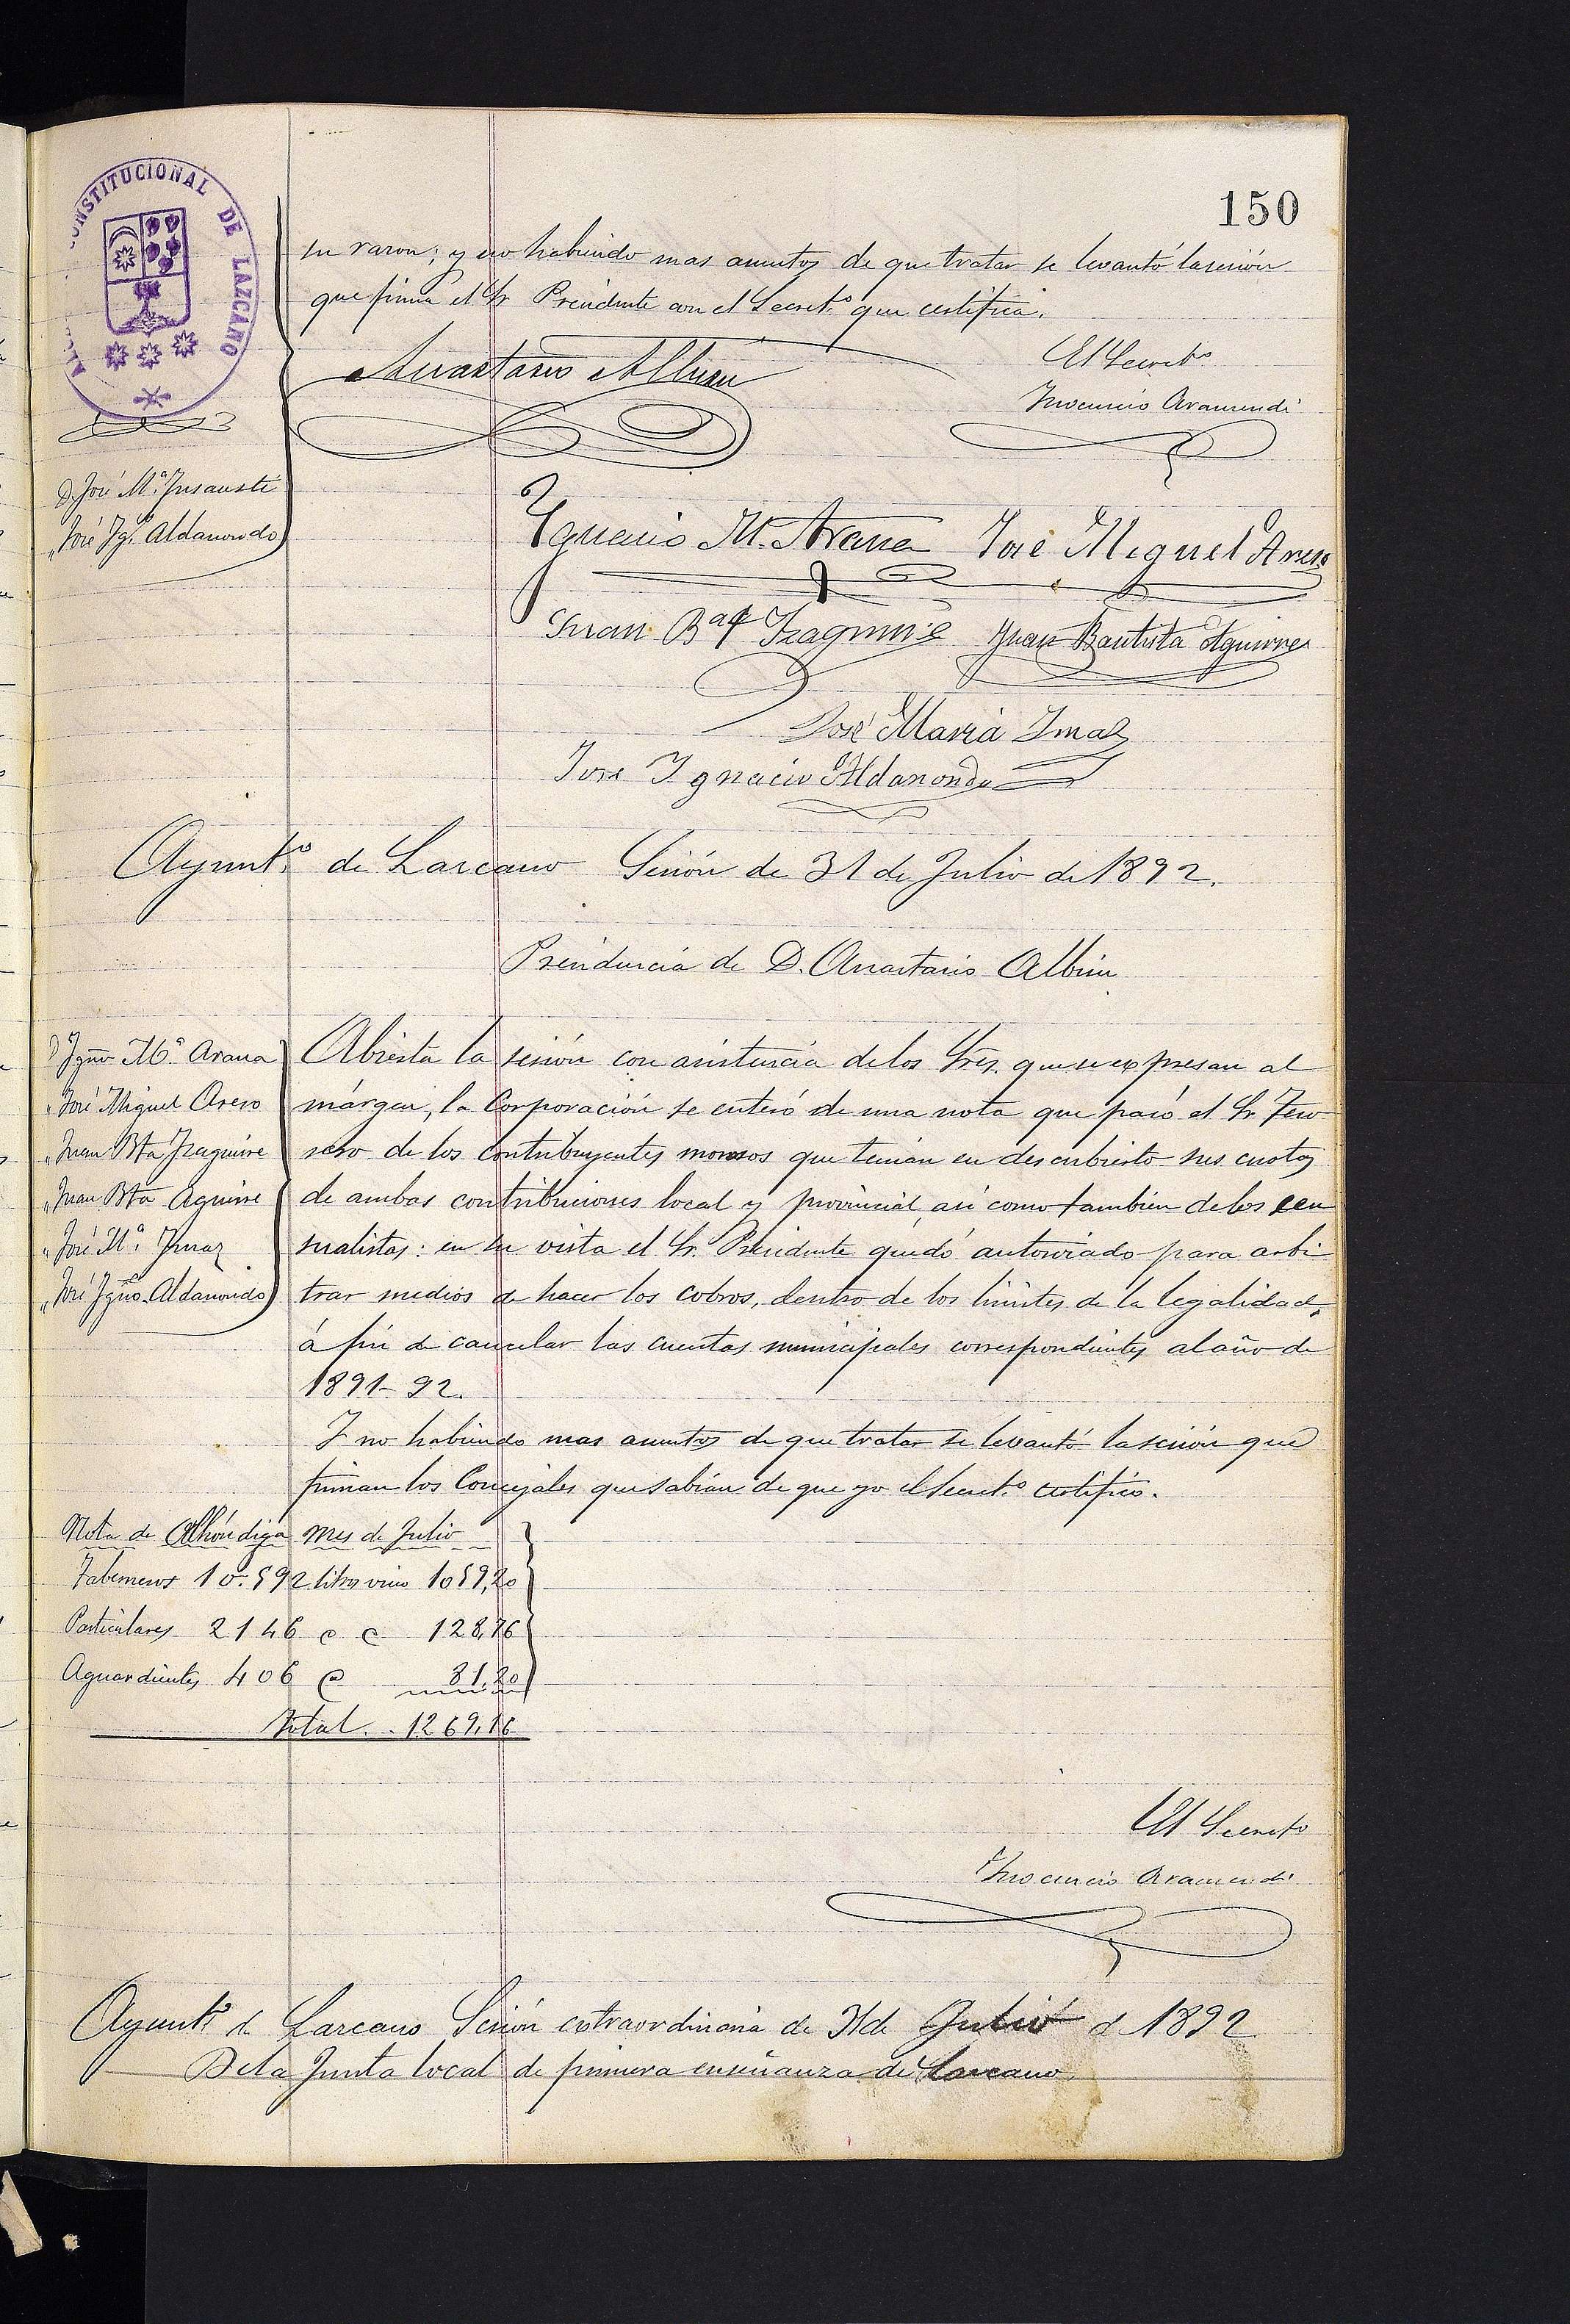 150
CONSTITUCIONAL DE LAZCANO
su razon; y no habiendo mas asuntos de que tratar se levantó la sesión
que firma el Sr Presidente con el Secret.º que certifica.
Anastasio Albisu
El Secret.º
Inocencio Aramendi
D. José M.ª Insausti
„ José Ig.º Aldanondo
Ygnacio M. Arana José Miguel Areso
Juan B.ta Yzaguirre Juan Bautista Aguirre
José Maria Imaz
Jose Ygnacio Aldanondo
Ayunt.º de Lazcano Sesión de 31 de Julio de 1892.
Presidencia de D. Anastasio Albisu
D Ygnº M.ª Arana
„ José Miguel Areso
„ Juan Bta Yzaguirre
„ Juan Bta Aguirre
„ José M.ª Ymaz
„ José Ygnº Aldanondo
Abierta la sesión con asistencia de los Sres. que se expresan al
márgen, la Corporación se enteró de una nota que pasó el Sr. Teso
rero de los contribuyentes morosos que tenían en descubierto sus cuotas
de ambas contribuciones local y provincial, asi como tambien de los cen
sualistas: en su vista el Sr. Presidente quedó autorizado para arbi
trar medios de hacer los cobros, dentro de los limites de la legalidad,
á fin de cancelar las cuentas municipales correspondientes al año de
1891-92.
Y no habiendo mas asuntos de que tratar se levantó la sesión que
firman los Concejales que sabian de que yo el Secret.º certifico.
Nota de Alhóndiga mes de Julio
Taberneros 10.592 litros vino 1059,20
Particulares 2146 " " 128,76
Aguardientes 406 " 81,20
Total .. 1269,16
El Secretº
Inocencio Aramendi
Ayunt.º de Lazcano Sesión extraordinaria de 31 de Julio d 1892
De la Junta local de primera enseñanza de Lazcano